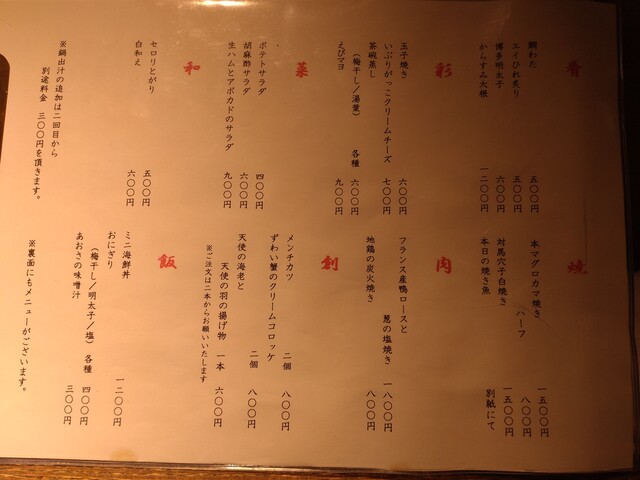 肴
鯛わた 五〇〇円
エイひれ炙り 五〇〇円
博多明太子 六〇〇円
からすみ大根 一二〇〇円
彩
玉子焼き 六〇〇円
いぶりがっこクリームチーズ 七〇〇円
茶碗蒸し
(梅干し/湯葉) 各種 六〇〇円
えびマヨ 九〇〇円
菜
ポテトサラダ 四〇〇円
胡麻酢サラダ 六〇〇円
生ハムとアボカドのサラダ 九〇〇円
和
セロリとがり 五〇〇円
白和え 六〇〇円
※鍋出汁の追加は二回目から
別途料金 三〇〇円を頂きます。
焼
本マグロカマ焼き 一五〇〇円
ハーフ 八〇〇円
対馬穴子白焼き 一五〇〇円
本日の焼き魚 別紙にて
肉
フランス産鴨ロースと
葱の塩焼き 一八〇〇円
地鶏の炭火焼き 八〇〇円
創
メンチカツ 二個 八〇〇円
ずわい蟹のクリームコロッケ
二個 八〇〇円
天使の海老と
天使の羽の揚げ物 一本 六〇〇円
※ご注文は二本からお願いいたします
飯
ミニ海鮮丼 一二〇〇円
おにぎり
(梅干し/明太子/塩) 各種 四〇〇円
あおさの味噌汁 三〇〇円
※裏面にもメニューがございます。